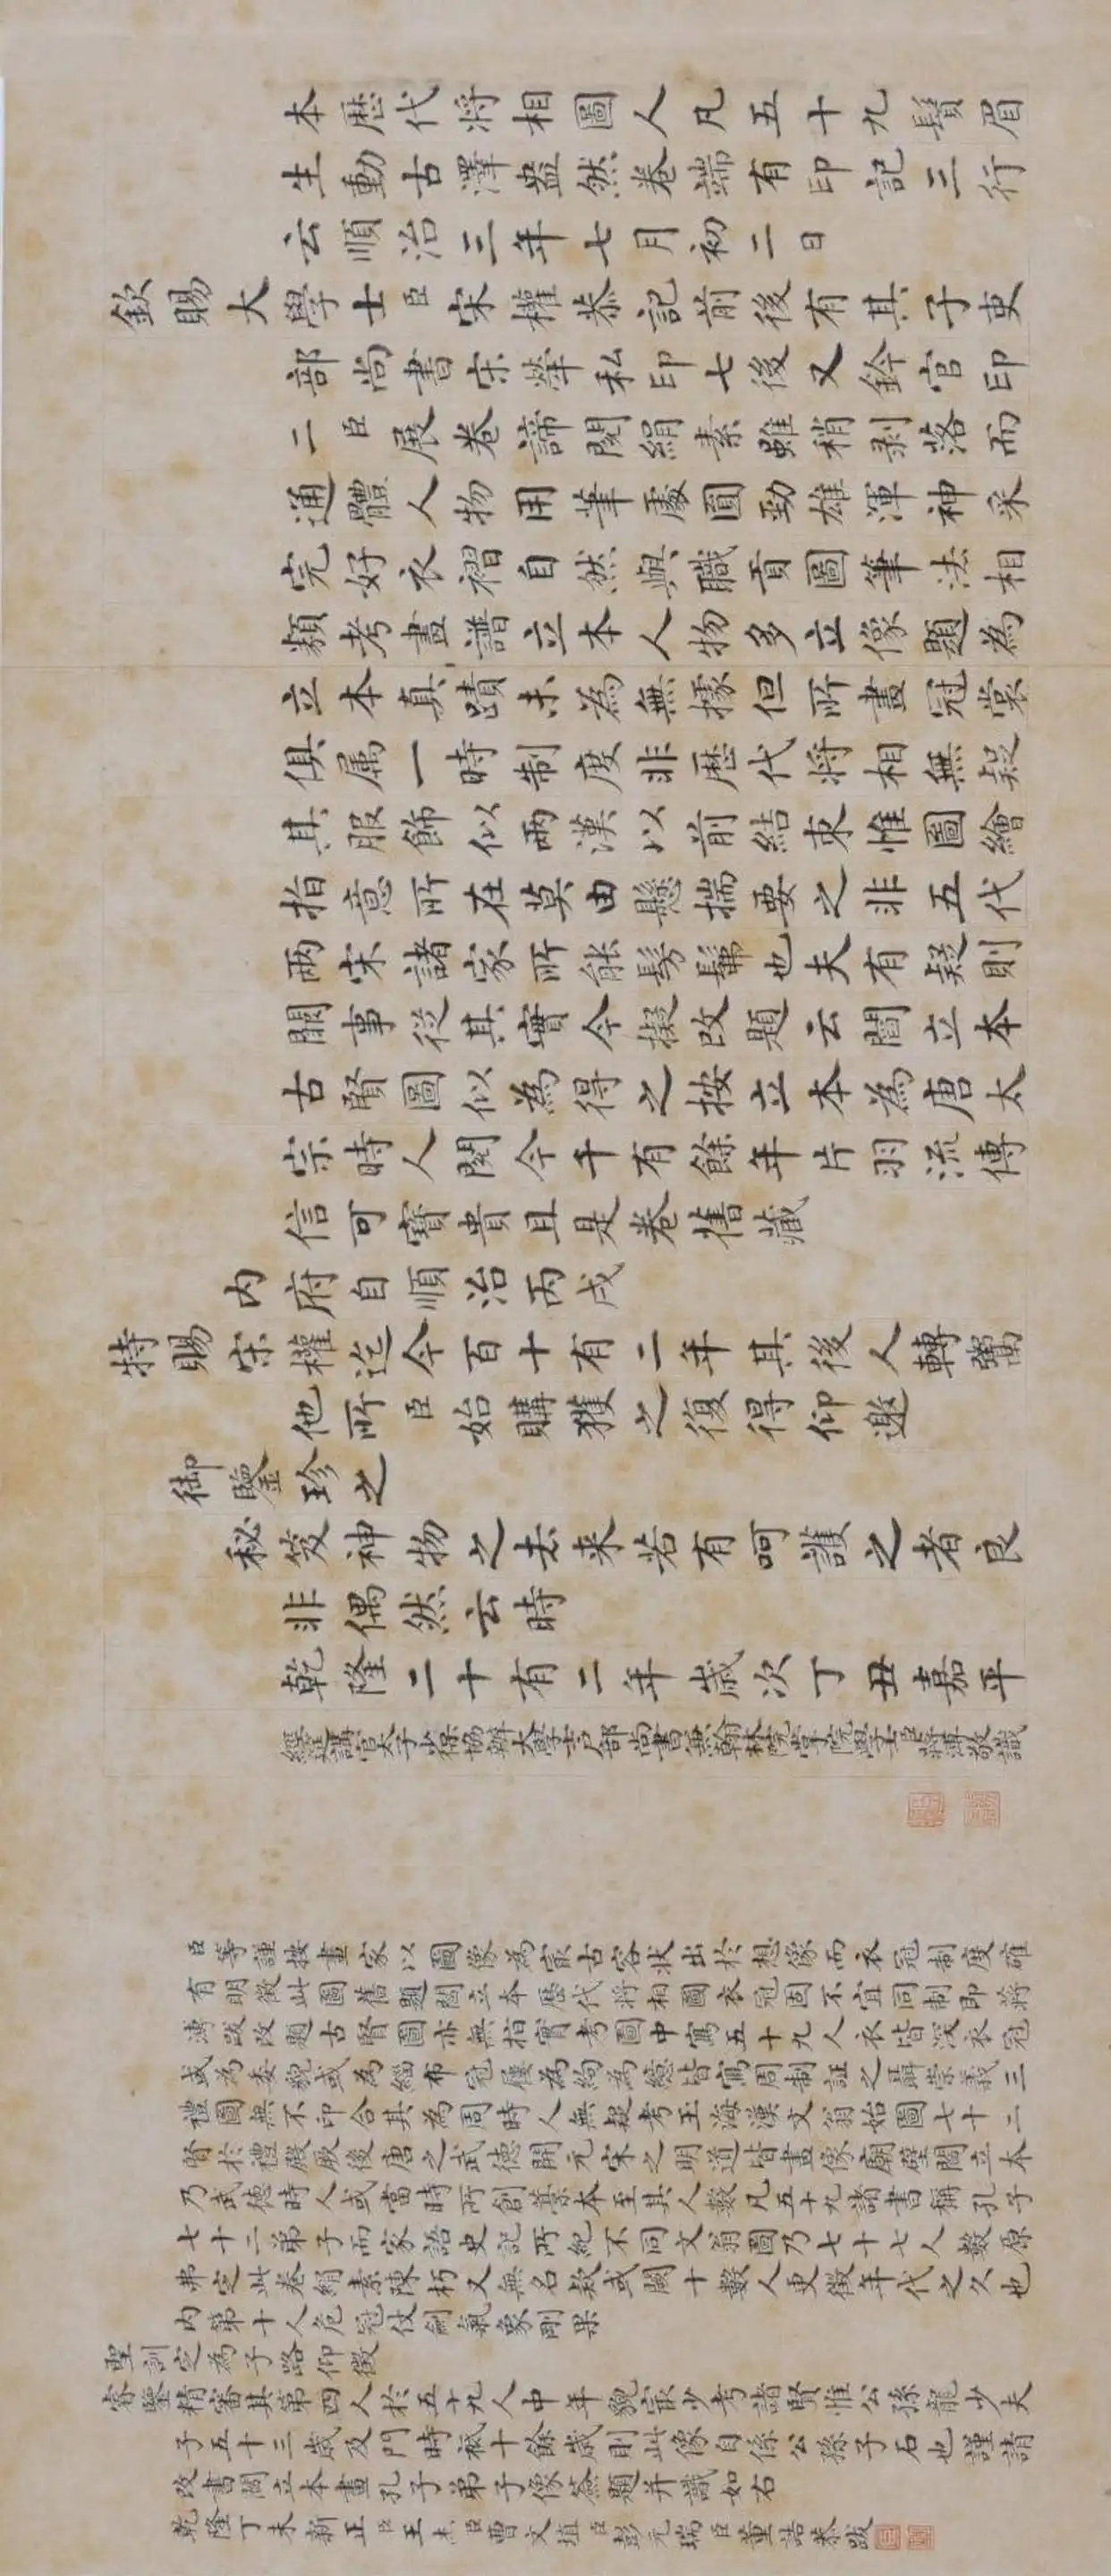 本歷代將相圖人凡五十九鬚眉
生動古澤盎然卷端有印記三行
云順治三年七月初二日
欽賜大學士臣宋權恭記前後有其子吏
部尚書宋犖私印七後又鈐官印
二臣展卷諦閱絹素雖稍剥落而
通體人物用筆處圓勁雄渾神采
完好衣褶自然與職貢圖筆法相
類考畫譜立本人物多立像題為
立本真蹟未為無據但所畫冠裳
俱属一時制度非歷代将相無疑
其服飾似兩漢以前結束惟圖繪
指意所在莫由懸揣要之非五代
兩宋諸家所能髣髴也夫有疑則
闕事従其實今擬改題云閻立本
古賢圖似為得之按立本為唐太
宗時人閱今千有餘年片羽流傳
信可寶貴且是卷舊藏
内府自順治丙戌
特賜宋權迄今百十有二年其後人轉鬻
他所臣始購獲之復得仰邀
御鑒珍之
秘笈神物之去来若有呵護之者良
非偶然云時
乾隆二十有二年歲次丁丑嘉平
經筵講官太子少保協辦大學士户部尚書兼翰林院掌院學士臣蔣溥敬識
臣等謹按畫家以圖像為㝡古容状出於想像而衣冠制度確
有明徴此圖舊題閻立本歷代将相圖衣冠固不宜同制即蔣
溥跋改題古賢圖亦無指實考圖中寫五十九人衣皆深衣冠
或為委貌或為緇布冠屨為絇為繶皆寫周制証之聶崇義三
禮圖無不印合其為周時人無疑考玉海漢文翁始圖七十二
賢於禮殿厥後唐之武徳開元宋之明道皆畫像廟壁閻立本
乃武徳時人或當時所創藁本至其人數凡五十九諸書稱孔子
七十二弟子而家語史記所紀不同文翁圖乃七十七人數原
弗定此卷絹素陳朽又無名款或闕十數人更徴年代之久也
内第十人危冠仗劍氣象剛果
聖訓定為子路仰徴
睿鑒精審其第四人於五十九人中年貌㝡少考諸賢惟公孫龍少夫
子五十三歲及門時祇十餘歲則此像自係公孫子石也謹請
改書閻立本畫孔子弟子像簽題并識如右
乾隆丁未新正臣王杰臣曹文埴臣彭元瑞臣董誥恭跋